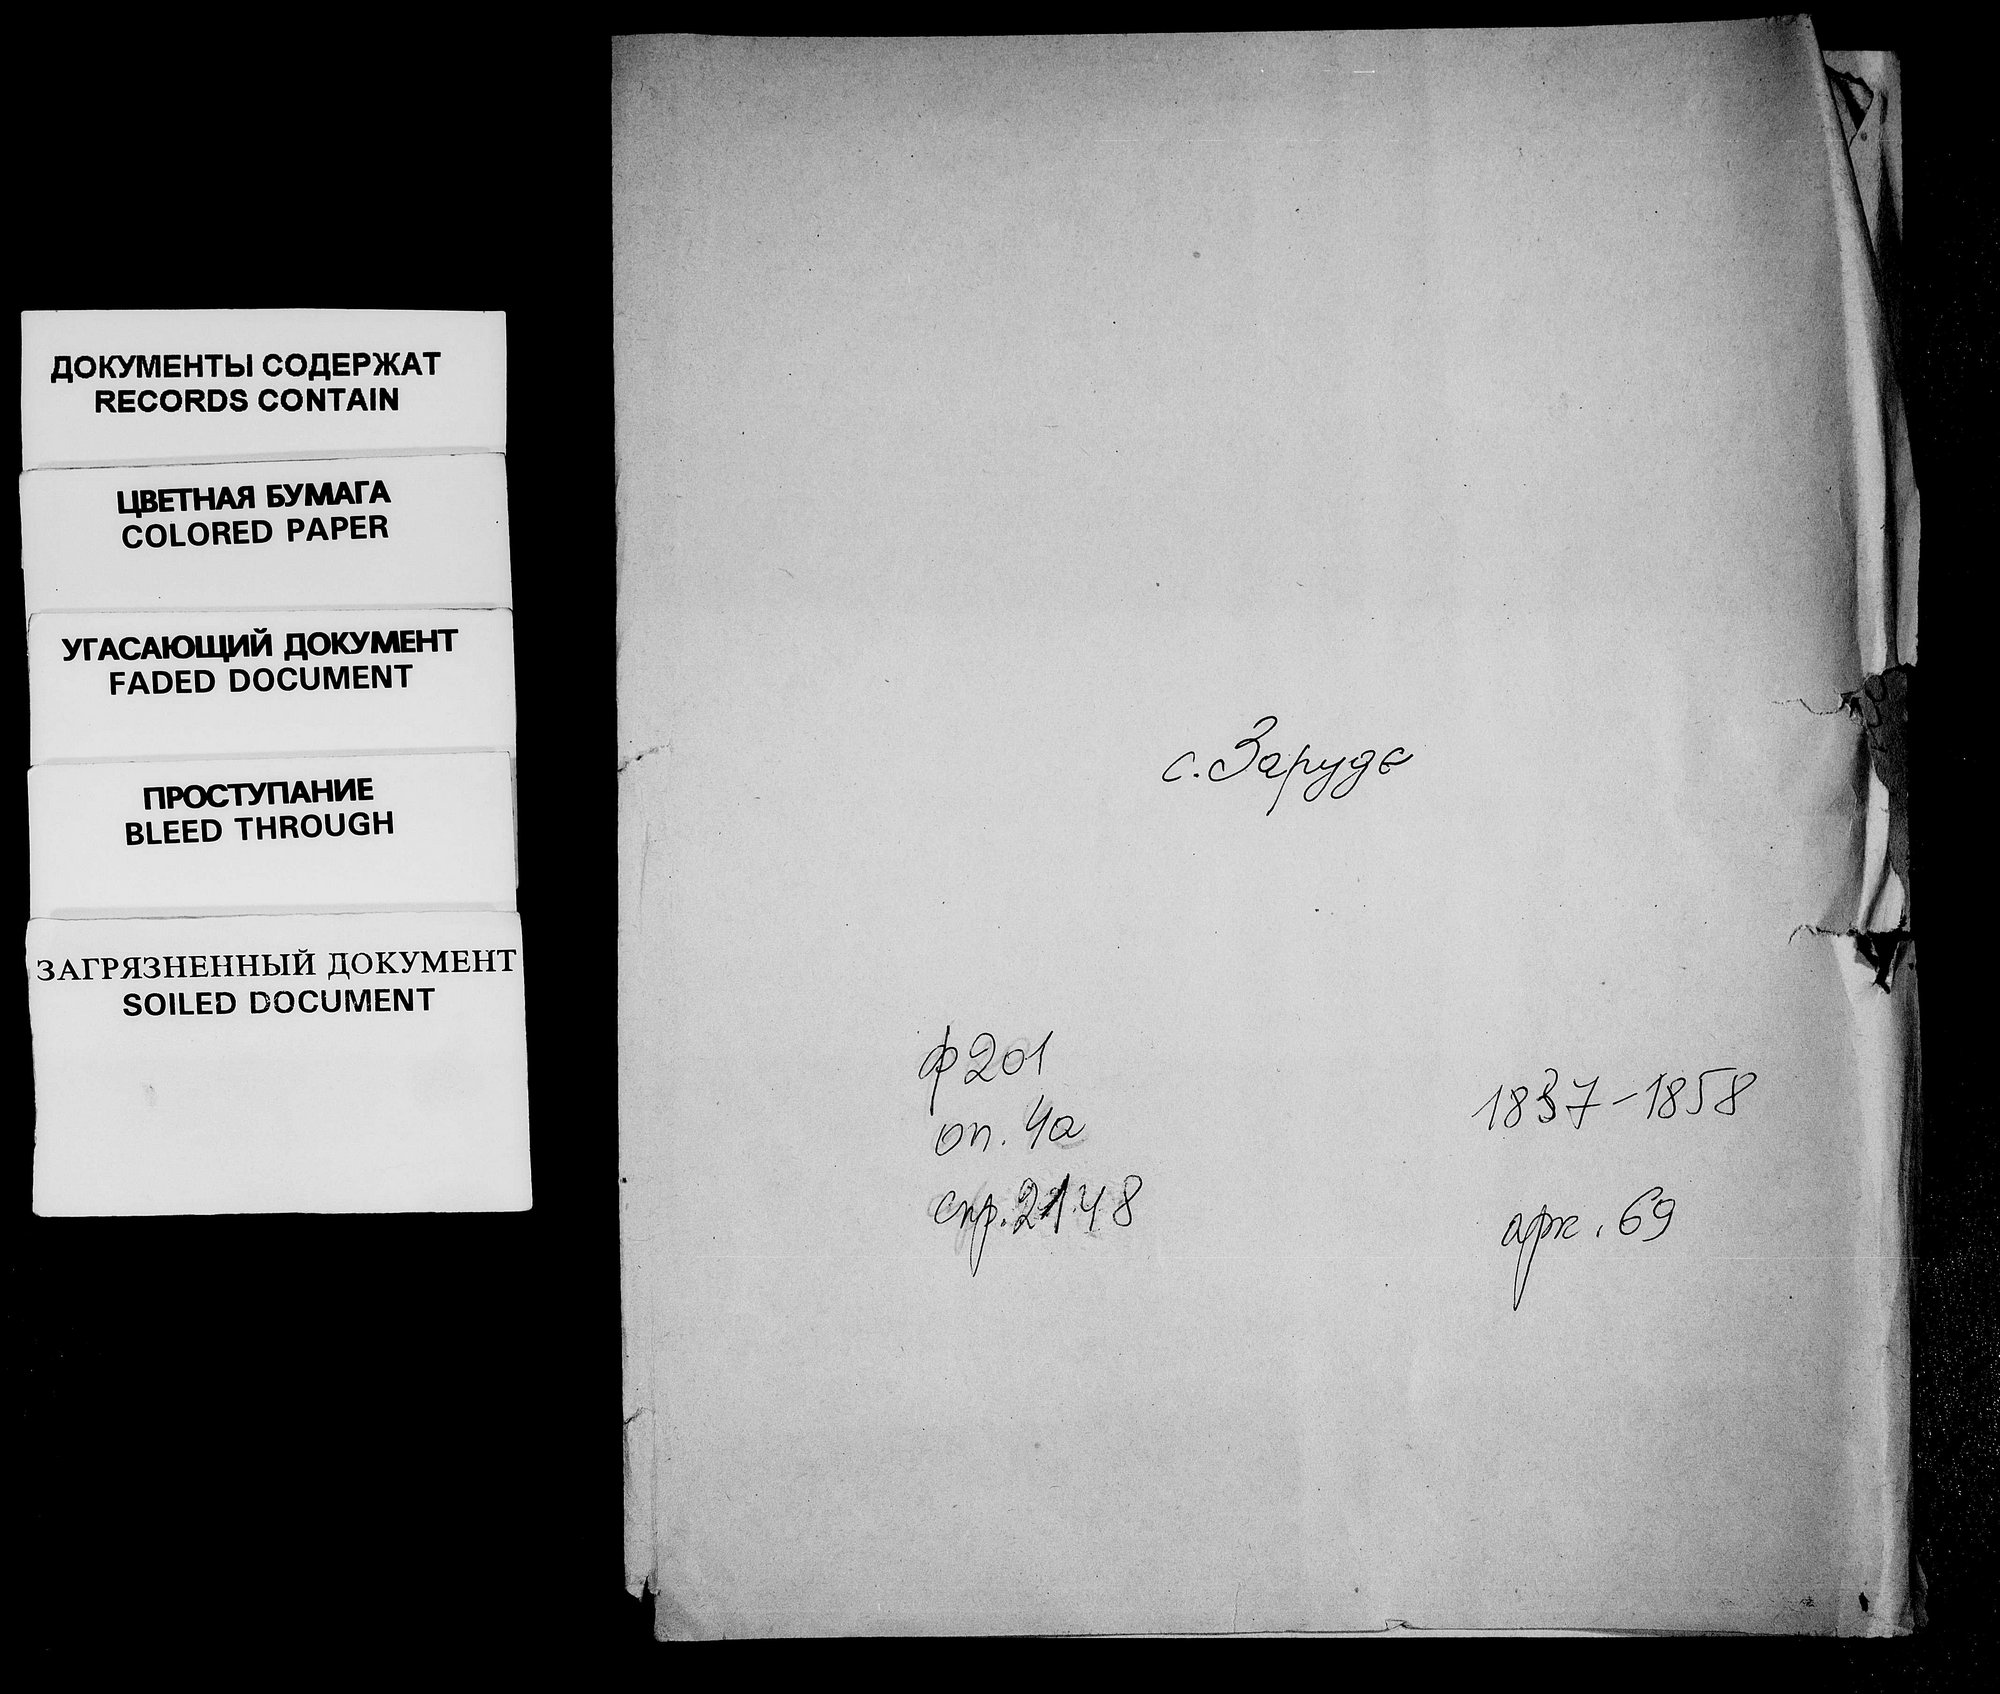 ДОКУМЕНТЫ СОДЕРЖАТ
RECORDS CONTAIN
ЦВЕТНАЯ БУМАГА
COLORED PAPER
УГАСАЮЩИЙ ДОКУМЕНТ
FADED DOCUMENT
ПРОСТУПАНИЕ
BLEED THROUGH
ЗАГРЯЗНЕННЫЙ ДОКУМЕНТ
SOILED DOCUMENT
с. Зарудє
ф 201
оп. 4а
спр. 2148
1837-1858
арк. 69